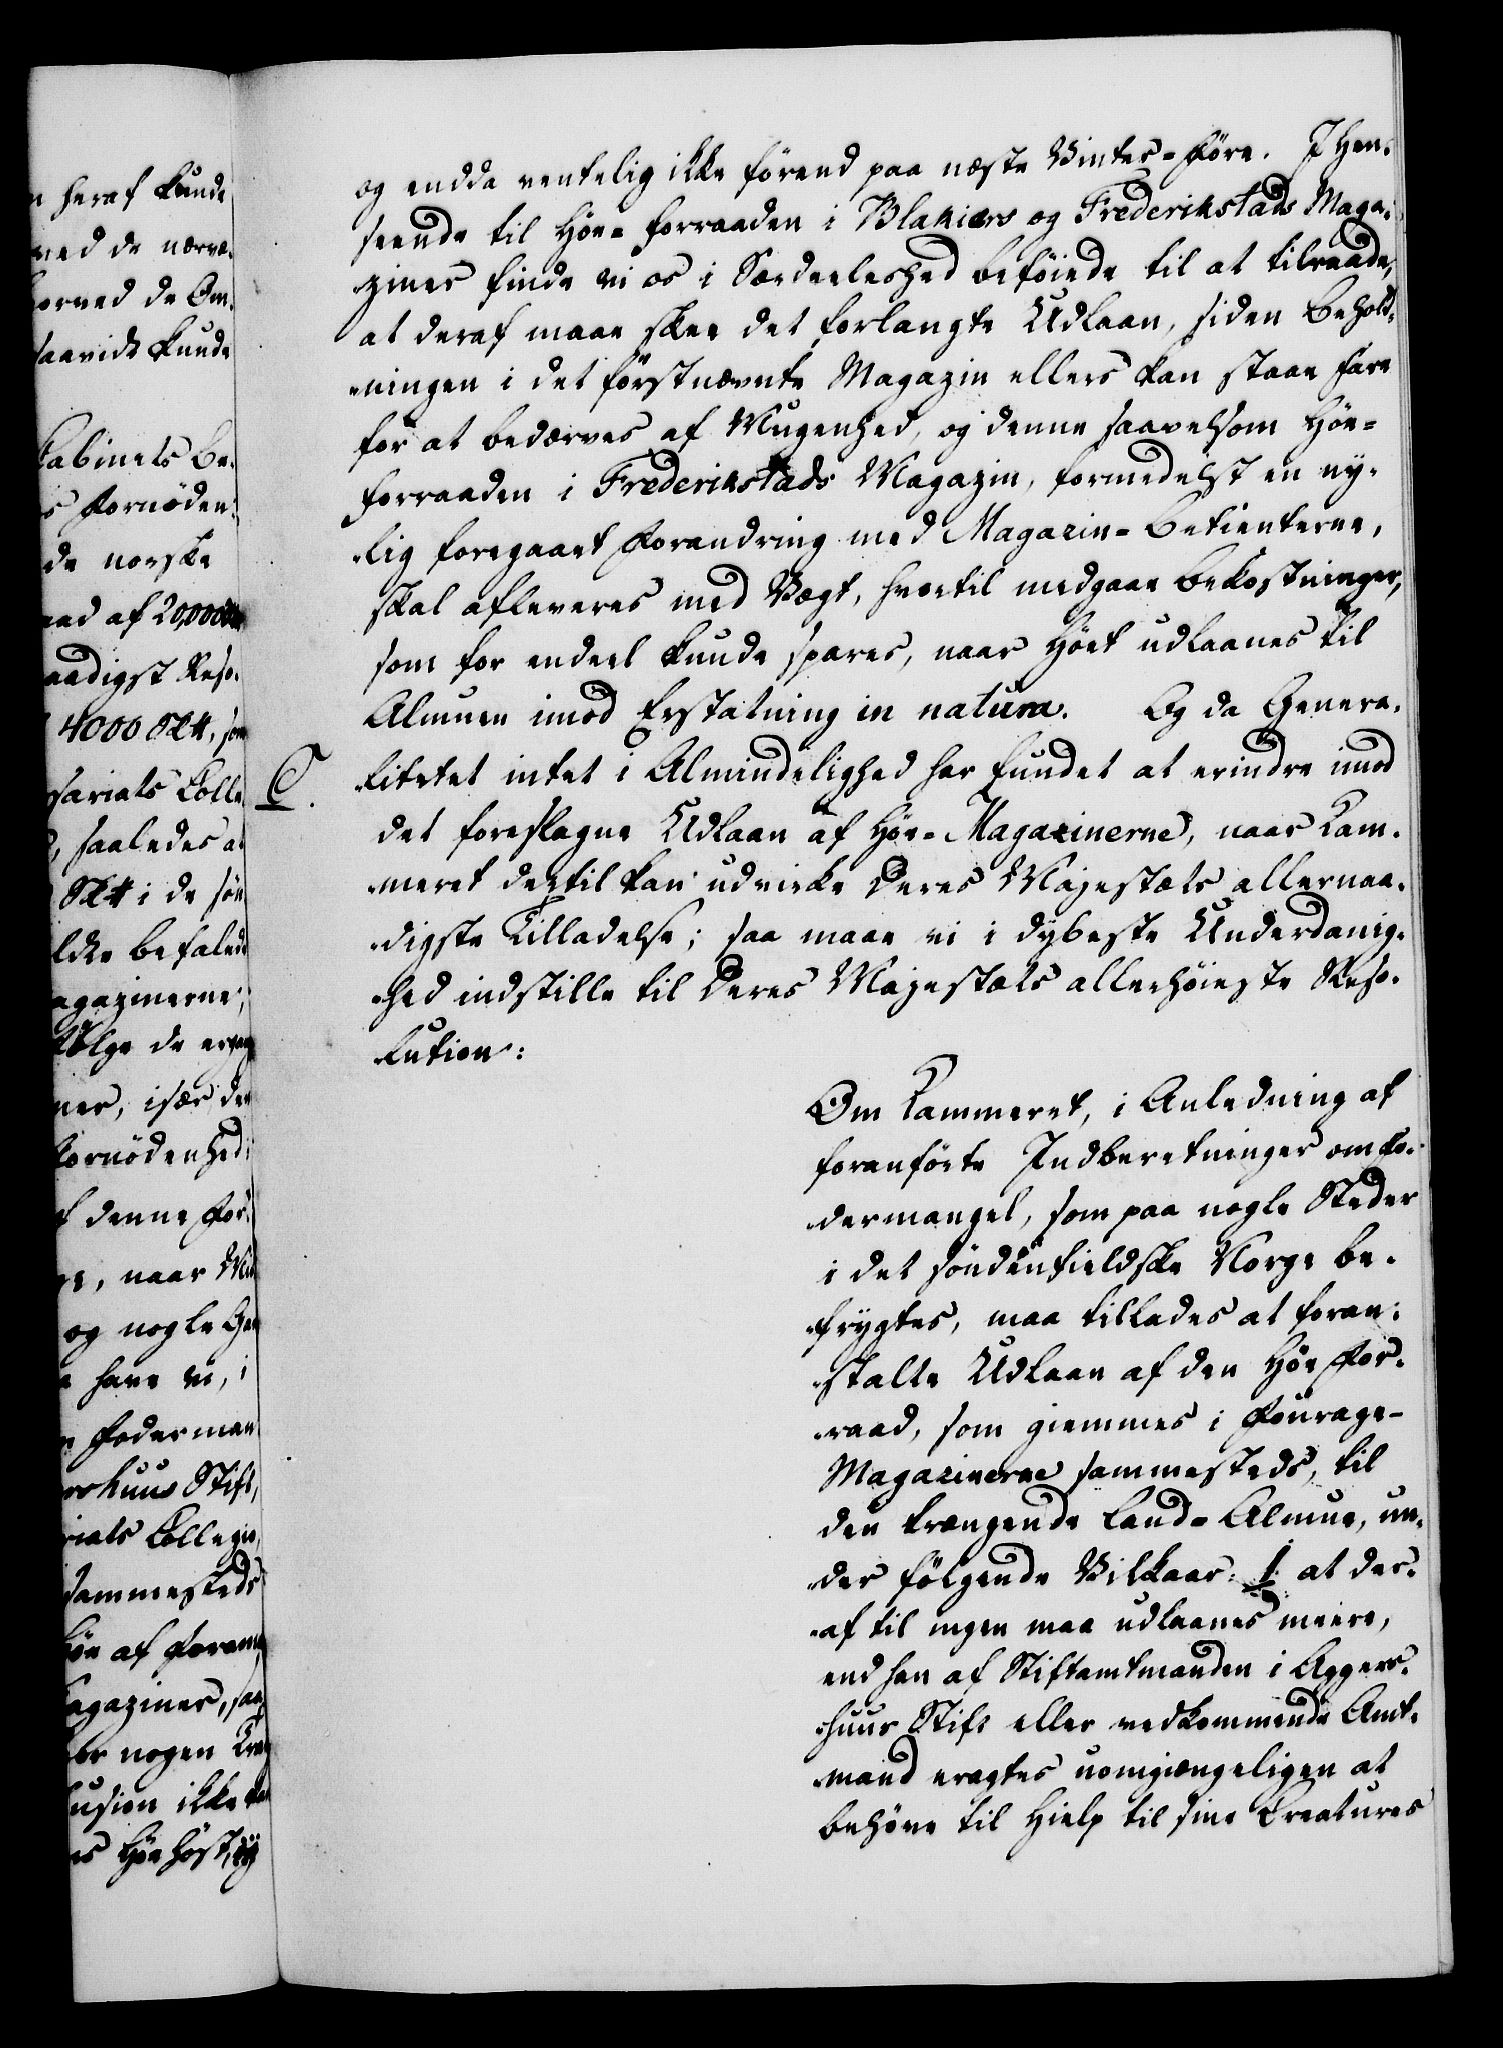 n heraf kunde
ved de nærvæ-
horved de Om-
saavidt kunde
Cabinets Be-
s Fornöden-
de norske
aad af 20,000
aadigst Reso-
4000 Skt, som
sariats Colle
, saaledes at
Skt i de sön
ldte befalede
agazinerne;
fölge de ergang
ner, især den
Fornödenhed
f denne For-
, naar
og nogle
have vi, i
Foderman
rshuus Stift,
riats Collegio,
sammesteds
Höe af Forann
agaziner, saa
er nogen
usion ikke
es Höe höst, og
og endda ventelig ikke förend paa næste Vinter-Före. I Hen-
seende til Höe-forraaden i Blakiærs og Frederikstads Maga-
ziner finde vi os i Særdeeleshed beföiede til at tilraade,
at deraf maae skee det forlangte Udlaan, siden Behold-
ningen i det förstnævnte Magazin ellers kan staae Fare
for at bedærves af Mugenhed, og denne saavelsom Höe-
forraaden i Frederikstads Magazin, formedelst en ny-
lig foregaaet Forandring med Magazin-Betienterne,
skal afleveres med Vægt, hvortil medgaae Bekostninger,
som for endeel kunde spares, naar Höet udlaanes til
Almuen imod Erstatning in natura. Og da Genera-
C. litetet intet i Almindelighed har fundet at erindre imod
det foreslagne Udlaan af Höe-Magazinerne, naar Kam-
meret dertil kan udvirke Deres Majestæts allernaa-
digste Tilladelse; saa maae vi i dybeste Underdanig-
hed indstille til Deres Majestæts allerhöieste Reso-
lution:
Om Kammeret, i Anledning af
foranförte Indberetninger om Fo-
dermangel, som paa nogle Steder
i det söndenfieldske Norge be-
frygtes, maa tillades at foran-
stalte Udlaan af den Höe For-
raad, som giemmes i Fourage-
Magazinerne sammesteds, til
den trængende Land-Almue, un-
der fölgende Vilkaar: 1. at der-
af til ingen maa udlaanes meere,
end han af Stiftamtmanden i Aggers-
huus Stift eller vedkommende Amt-
mand eragtes uomgiængeligen at
behöve til Hielp til sine Creatures